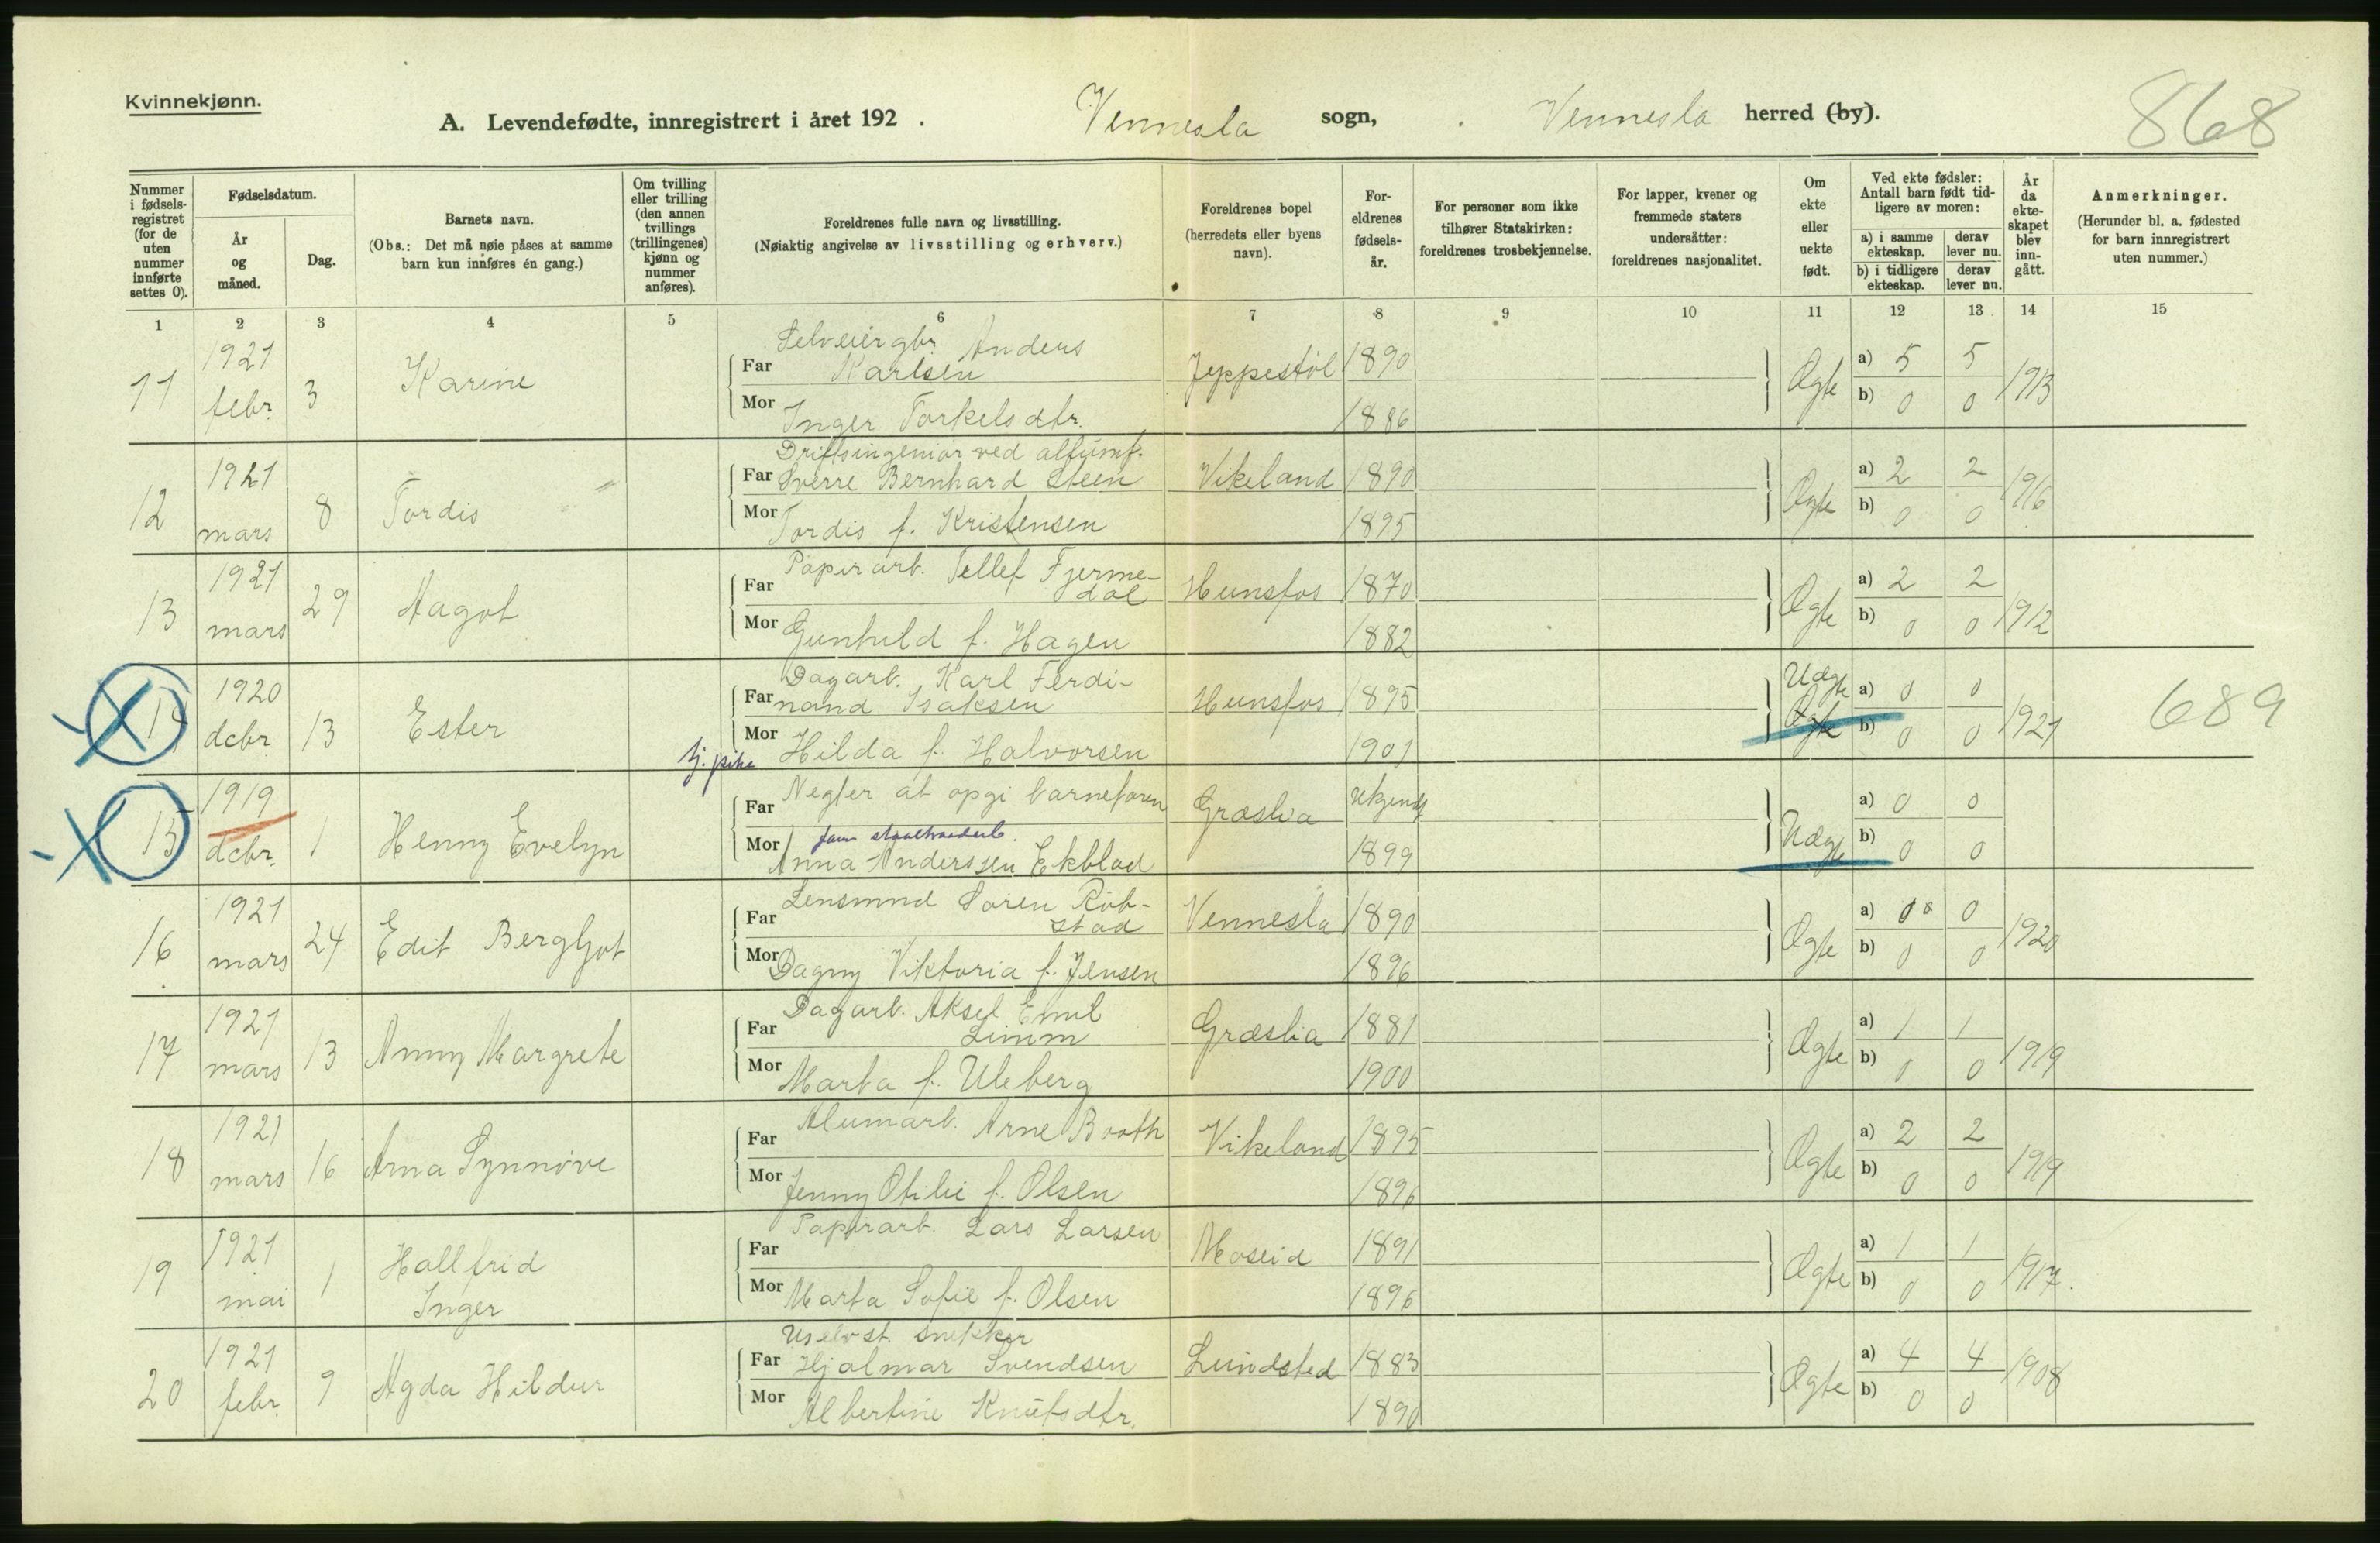 Kvinnekjønn.
A. Levendefødte, innregistrert i året 192 . Vennesla sogn, Vennesla herred (by).
868
Nummer i fødsels-registret (for de uten nummer innførte settes 0).
Fødselsdatum.
År og måned.
Dag.
Barnets navn.
(Obs.: Det må nøie påses at samme barn kun innføres én gang.)
Om tvilling eller trilling (den annen tvillings (trillingenes) kjønn og nummer anføres).
Foreldrenes fulle navn og livsstilling.
(Nøiaktig angivelse av livsstilling og erhverv.)
Foreldrenes bopel (herredets eller byens navn).
For-eldrenes fødsels-år.
For personer som ikke tilhører Statskirken: foreldrenes trosbekjennelse.
For lapper, kvener og fremmede staters undersåtter: foreldrenes nasjonalitet.
Om ekte eller uekte født.
Ved ekte fødsler: Antall barn født tid-ligere av moren:
a) i samme ekteskap.
derav lever nu.
b) i tidligere ekteskap.
derav lever nu.
År da ekte-skapet blev inn-gått.
Anmerkninger.
(Herunder bl. a. fødested for barn innregistrert uten nummer.)
1 2 3 4 5 6 7 8 9 10 11 12 13 14 15
11 1921 febr. 3 Karine
Selveiergbr. Anders
Far Karlsen Jeppestöl 1890
Mor Inger Torkelsdtr. 1886
Ægte a) 5 5 b) 0 0 1913
12 1921 mars 8 Tordis
Driftsingeniör ved alfumf.
Far Sverre Bernhard Steen Vikeland 1890
Mor Tordis f. Kristensen 1895
Ægte a) 2 2 b) 0 0 1916
13 1921 mars 29 Aagot
Far Papirarb. Tellef Fjerme-
dal Hunsfos 1870
Mor Gunhild f. Hagen 1882
Ægte a) 2 2 b) 0 0 1912
14 1920 dcbr 13 Ester
Dagarb. Karl Ferdi-
Far nand Isaksen Hunsfos 1895
Mor tj. pike Hilda f. Halvorsen 1901
Uægte Ægte a) 0 0 b) 0 0 1921 689
15 1919 dcbr. 1 Henny Evelyn
Far Negter at opgi barnefaren Græslia Ukjendt
Mor Anna Anderssen Ekblad 1899
Uægte a) 0 0 b) 0 0
16 1921 mars 24 Edit Bergljot
Far Lensmnd Sören Rob-
stad Vennesla 1890
Mor Dagny Viktoria f. Jensen 1896
Ægte a) 0 0 b) 0 0 1920
17 1921 mars 13 Anny Margrete
Far Dagarb. Aksel Emil
Limm Græslia 1881
Mor Marta f. Uleberg 1900
Ægte a) 1 1 b) 0 0 1919
18 1921 mars 16 Arna Synnöve
Far Alumarb. Arne Booth Vikeland 1895
Mor Jenny Otilie f. Olsen 1896
Ægte a) 2 2 b) 0 0 1919
19 1921 mai 1 Hallfrid
Inger
Far Papirarb. Lars Larsen Moseid 1891
Mor Marta Sofie f. Olsen 1896
Ægte a) 1 1 b) 0 0 1917.
20 1921 febr. 9 Agda Hildur
Uselvst. snekker
Far Hjalmar Svendsen Lundsted 1883
Mor Albertine Knutsdtr. 1890
Ægte a) 4 4 b) 0 0 1908